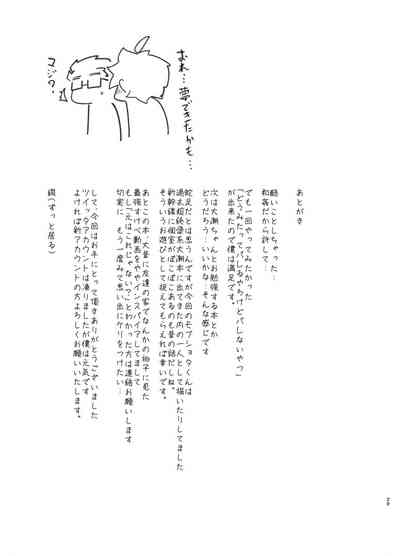 おれ…夢できたかも…
マジ?
あとがき
酷いことしちゃった…
和姦だから許して…
でも一回やってみたかった
「どうみたってバレるやろけどバレないやつ」
が出来たので僕は満足です。
次は大瀬ちゃんとお勉強する本とか
どうだろう…いいかな…そんな感じです
蛇足だとは思うんですが今回のモブショタくんは
過去超銃優系大瀬本に出てきた内の一人として描いたりしてました
新幹線に個室がぽこぽこあるのも昔の話だしね。
そういうお遊びとして捉えてもらえれば幸いです。
あとこの本、大昔に友達の家でなんかの拍子に見た
最強すけべ動画をややインスパイアしてまして
もし「え…これじゃない?」とわかった方は連絡お願いします
切実に、もう一度みて思い出にケリをつけたい…
して、今回はお手にとって頂きありがとうございました
ツイッタアカウントは滑りましたが僕は元気です
よければ新アカウントの方よろしくお願いいたします。
(ずっと居る)